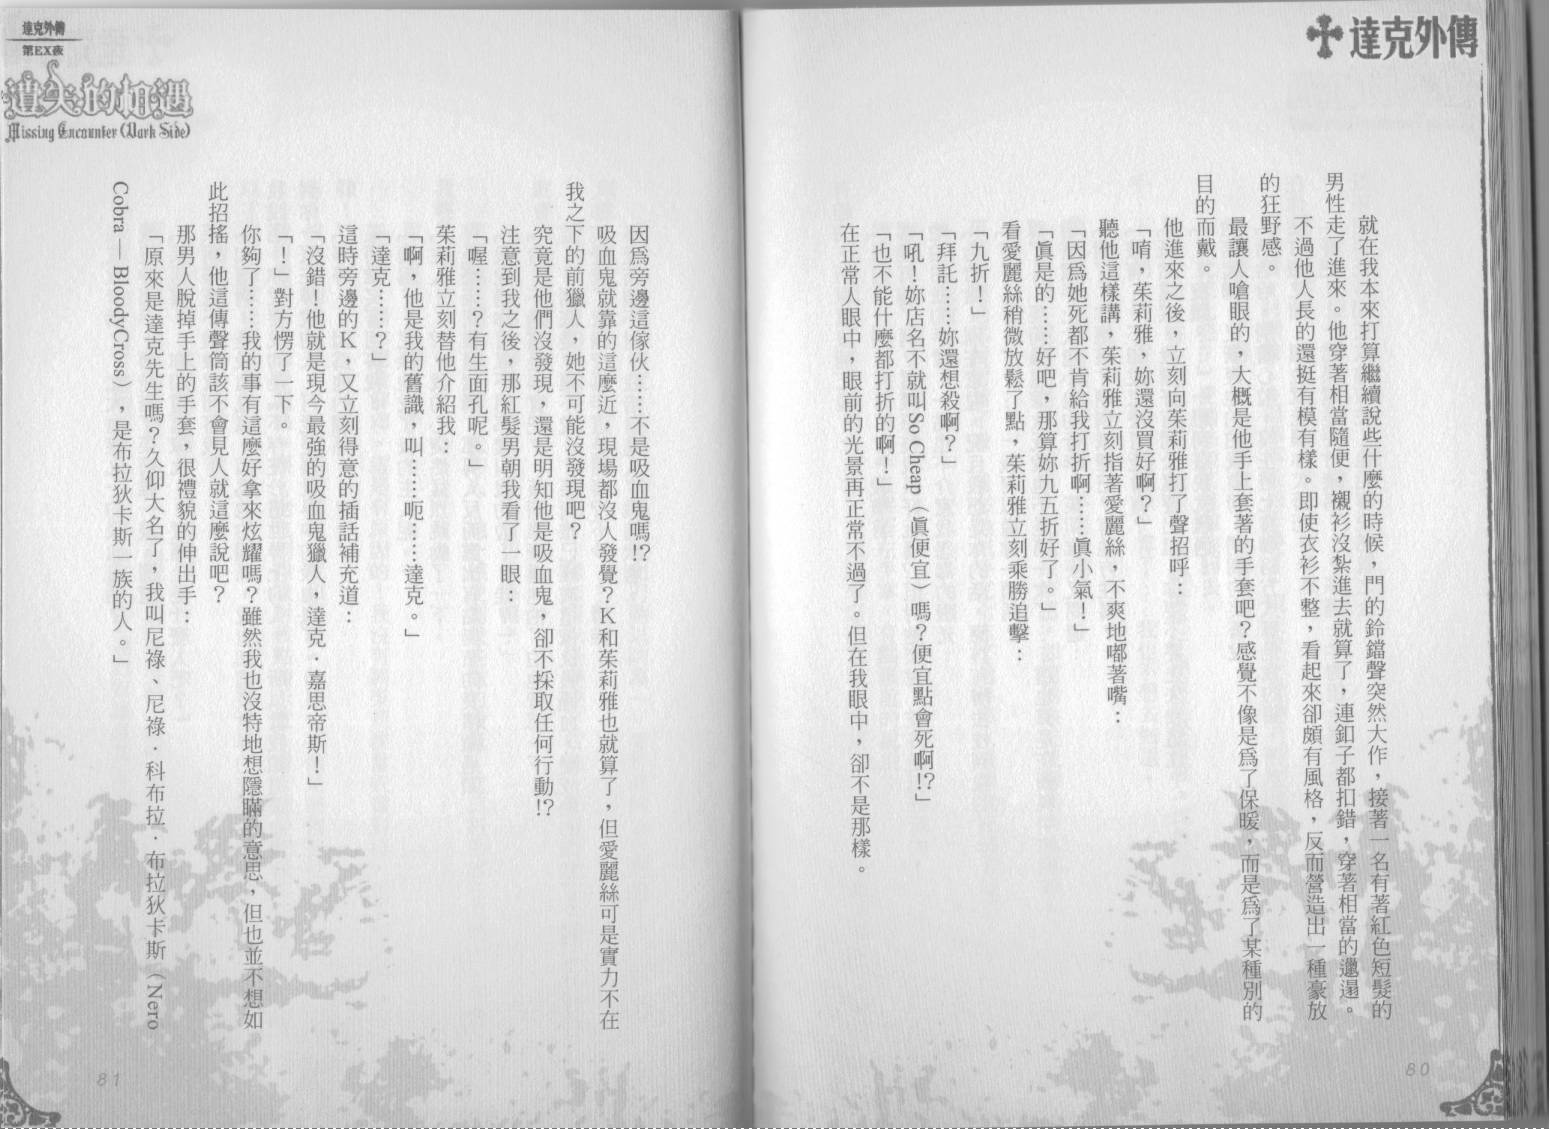 達克外傳
就在我本來打算繼續說些什麼的時候，門的鈴鐺聲突然大作，接著一名有著紅色短髮的
男性走了進來。他穿著相當隨便，襯衫沒紮進去就算了，連釦子都扣錯，穿著相當的邋遢。
不過他人長的還挺有模有樣。即使衣衫不整，看起來卻頗有風格，反而營造出一種豪放
的狂野感。
最讓人嗆眼的，大概是他手上套著的手套吧？感覺不像是爲了保暖，而是爲了某種別的
目的而戴。
他進來之後，立刻向茱莉雅打了聲招呼：
「唷，茱莉雅，妳還沒買好啊？」
聽他這樣講，茱莉雅立刻指著愛麗絲，不爽地嘟著嘴：
「因爲她死都不肯給我打折啊……眞小氣！」
「眞是的……好吧，那算妳九五折好了。」
看愛麗絲稍微放鬆了點，茱莉雅立刻乘勝追擊：
「九折！」
「拜託……妳還想殺啊？」
「吼！妳店名不就叫So Cheap（眞便宜）嗎？便宜點會死啊!?」
「也不能什麼都打折的啊！」
在正常人眼中，眼前的光景再正常不過了。但在我眼中，卻不是那樣。
80
達克外傳
第EX夜
遺失的相遇
Missing Encounter (Dark Side)
因爲旁邊這傢伙……不是吸血鬼嗎!?
吸血鬼就靠的這麼近，現場都沒人發覺？K和茱莉雅也就算了，但愛麗絲可是實力不在
我之下的前獵人，她不可能沒發現吧？
究竟是他們沒發現，還是明知他是吸血鬼，卻不採取任何行動!?
注意到我之後，那紅髮男朝我看了一眼：
「喔……？有生面孔呢。」
茱莉雅立刻替他介紹我：
「啊，他是我的舊識，叫……呃……達克。」
「達克……？」
這時旁邊的K，又立刻得意的插話補充道：
「沒錯！他就是現今最強的吸血鬼獵人，達克．嘉思帝斯！」
「！」對方愣了一下。
你夠了……我的事有這麼好拿來炫耀嗎？雖然我也沒特地想隱瞞的意思，但也並不想如
此招搖，他這傳聲筒該不會見人就這麼說吧？
那男人脫掉手上的手套，很禮貌的伸出手：
「原來是達克先生嗎？久仰大名了，我叫尼祿、尼祿．科布拉．布拉狄卡斯（Nero
Cobra — BloodyCross），是布拉狄卡斯一族的人。」
81